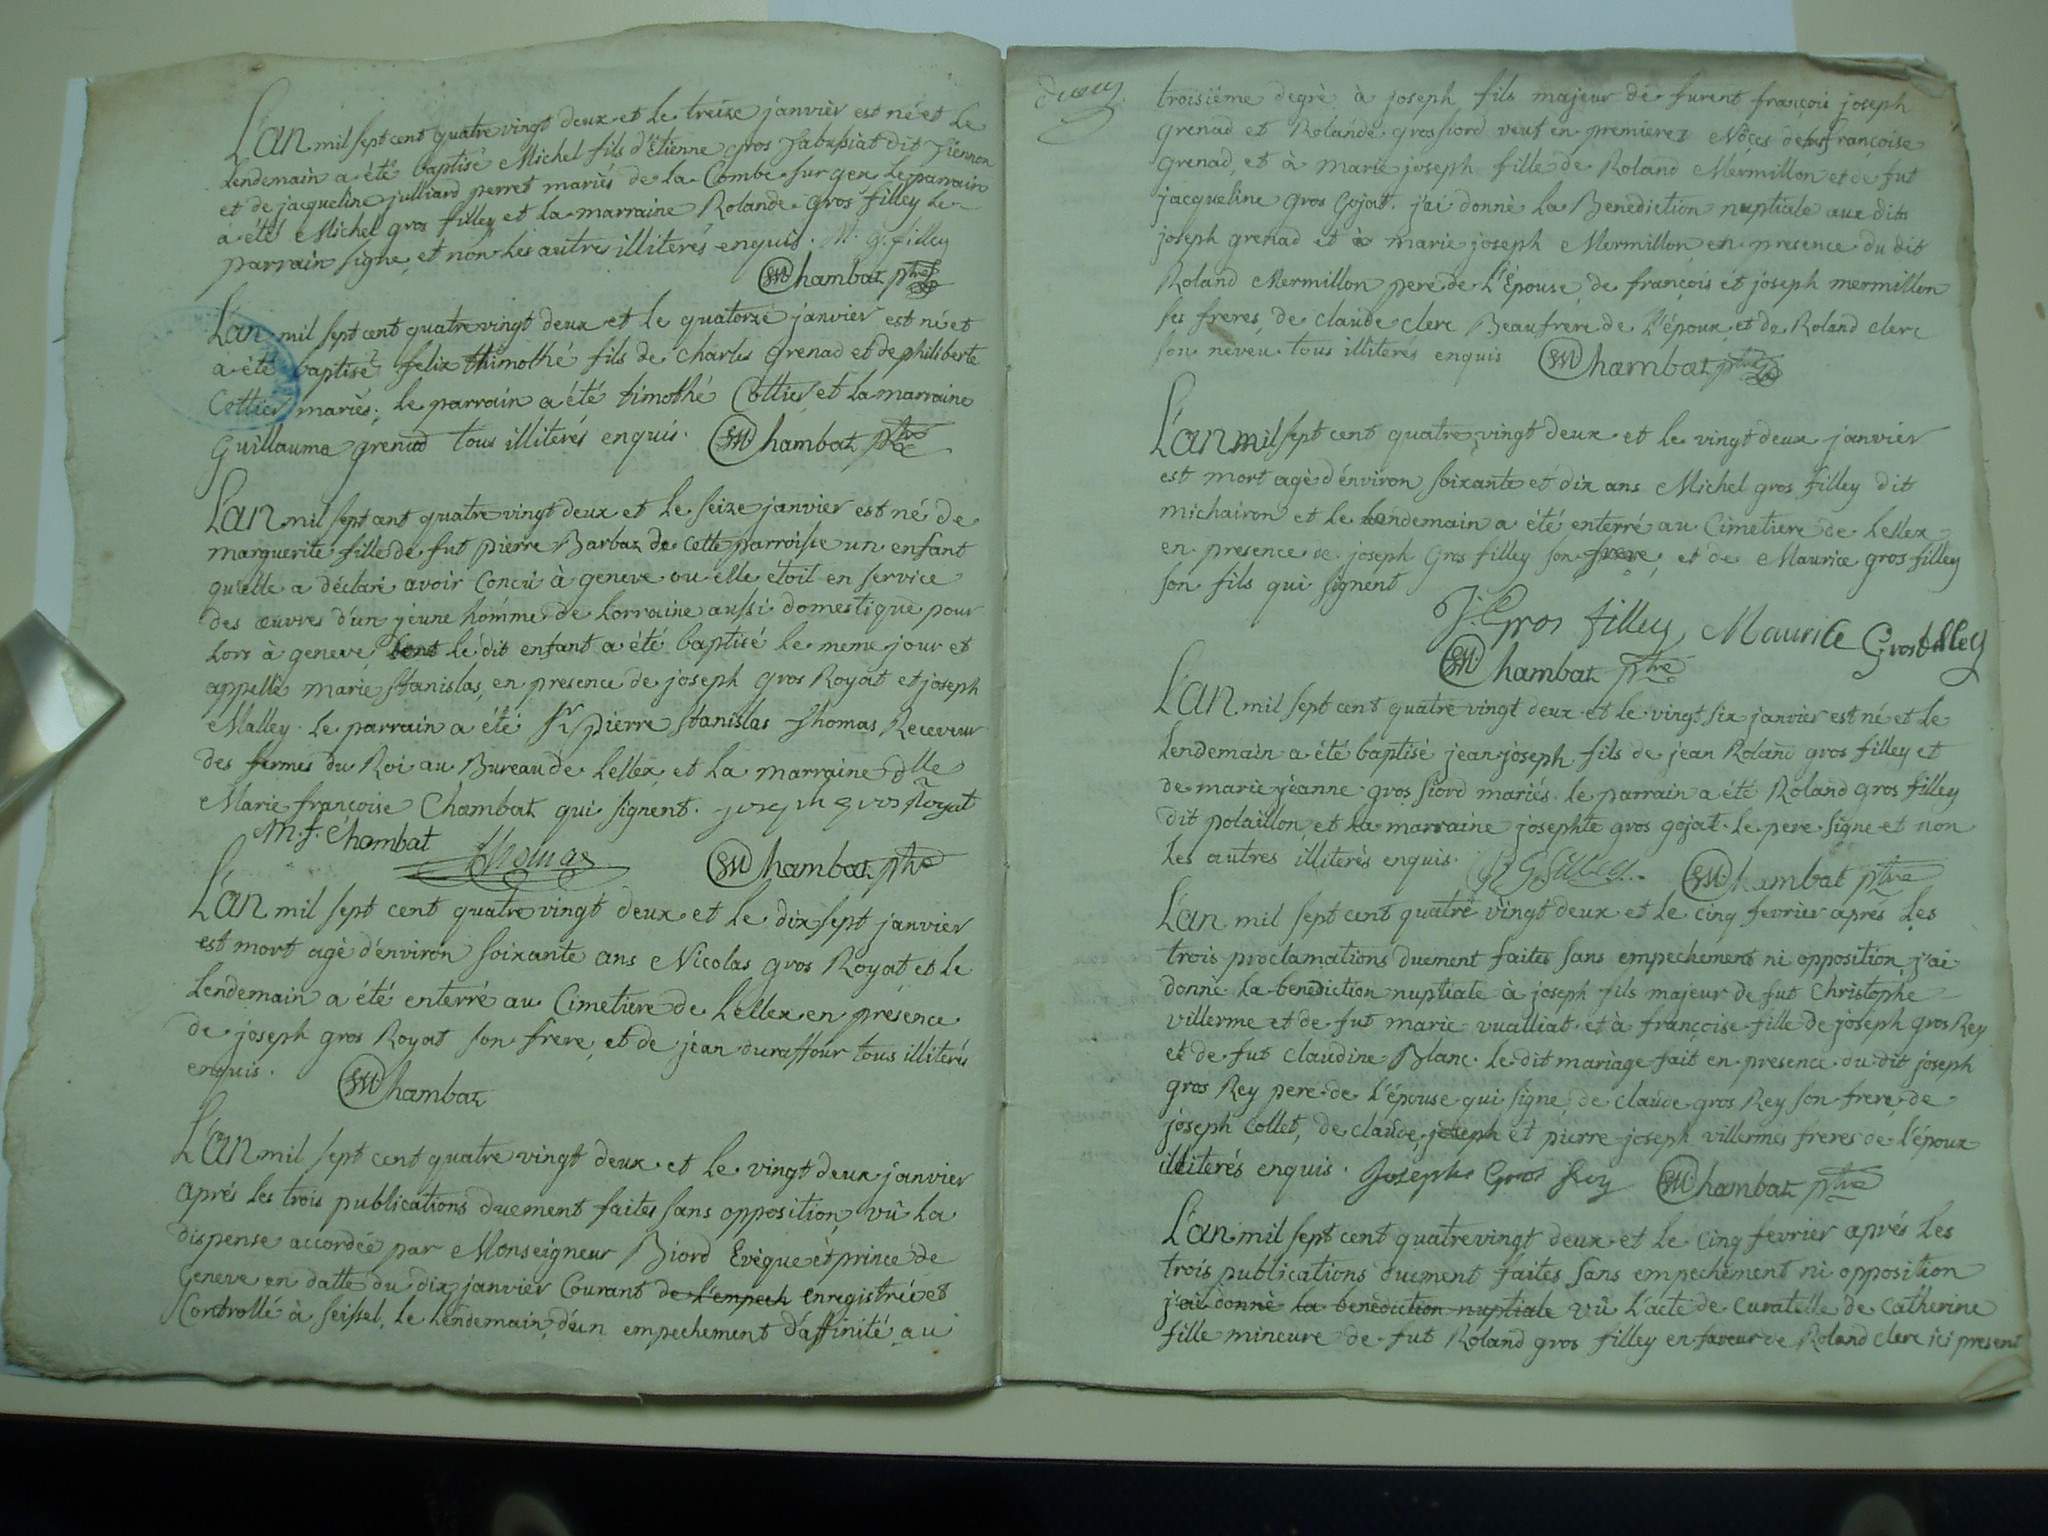 L'an mil sept cent quatre vingt deux et le treize janvier est né et le
lendemain a été baptisé Michel fils d'Etienne gros dit
et de jacqueline julliard perret mariés de la Combe sur gex le parrain
a été Michel gros filley et la marraine Rolande gros filley le
parrain signe, et non les autres illiterés enquis. M. g. filley
Chambaz ptre
L'an mil sept cent quatre vingt deux et le quatorze janvier est né et
a été baptisé felix thimothé fils de Charles grenad et de philiberte
Cottier mariés; le parrain a été timothé Cottier et la marraine
Guillauma grenad tous illiterés enquis. Chambaz ptre
L'an mil sept ant quatre vingt deux et le seize janvier est né de
marguerite fille de fut pierre Barbaz de cette parroisse un enfant
qu'elle a déclaré avoir concû à geneve ou elle etoit en service
des œuvres d'un jeune homme de Lorraine aussi domestique pour
lors à geneve, le dit enfant a été baptisé le meme jour et
appellé marie stanislas, en presence de joseph gros Royat et joseph
Malley. le parrain a été Sr pierre stanislas Thomas Receveur
des fermes du Roi au Bureau de Lellex et la marraine dlle
Marie françoise Chambaz qui signent. joseph gros Royat
M. f. Chambat Thomas Chambaz ptre
L'an mil sept cent quatre vingt deux et le dix sept janvier
est mort agé d'environ soixante ans Nicolas gros Royat et le
lendemain a été enterré au Cimetiere de Lellex en presence
de joseph gros Royat son frere, et de jean duraffour tous illiterés
enquis. Chambaz
L'an mil sept cent quatre vingt deux et le vingt deux janvier
aprés les trois publications duement faites sans opposition, vû la
dispense accordée par Monseigneur Biord Evêque et prince de
Geneve en datte du dix janvier Courant de l'empech enregistrée et
Controllé à Seissel, le lendemain, d'un empechement d'affinité au
troisiéme degrè à joseph fils majeur de furent françois joseph
grenad et Rolande grossiord veuf en premieres Nôces de fut françoise
grenad, et à marie joseph fille de Roland Mermillon et de fut
jacqueline gros gojat. j'ai donnè la Benediction nuptiale aux dits
joseph grenad et à marie joseph Mermillon en presence du dit
Roland Mermillon pere de l'Epouse, de françois et joseph mermillon
ses freres, de claude clerc Beaufrere de l'époux, et de Roland clerc
son neveu tous illiterés enquis Chambaz ptre
L'an mil sept cent quatre vingt deux et le vingt deux janvier
est mort agè d'énviron soixante et dix ans Michel gros filley dit
michairon et le lendemain a été enterré au Cimetiere de Lellex
en presence de joseph Gros filley son frere, et de Maurice gros filley
son fils qui signent
J. Gros filley, Maurice Gros filley
Chambaz ptre
L'an mil sept cent quatre vingt deux et le vingt six janvier est né et le
lendemain a été baptisé jean joseph fils de jean Roland gros filley et
de marie jéanne gros siord mariés. le parrain a été Roland gros filley
dit polaillon, et la marraine josephte gros gojat. le pere signe et non
les autres illiterés enquis. Chambaz ptre
L'an mil sept cent quatre vingt deux et le cinq fevrier aprés les
trois proclamations duement faites sans empechement ni opposition, j'ai
donnè la benediction nuptiale à joseph fils majeur de fut Christophe
villerme et de fut marie vualliat et à françoise fille de joseph gros Rey
et de fut claudine Blanc. le dit mariage fait en presence du dit joseph
gros Rey pere de l'épouse qui signe, de claude gros Rey son frere, de
joseph Collet, de claude, joseph et pierre joseph villermes freres de l'époux
illiterés enquis. Joseph Gros Rey Chambaz ptre
L'an mil sept cent quatre vingt deux et le cinq fevrier aprés les
trois publications duement faites sans empechement ni opposition
j'ai donnè la benediction nuptiale vû l'acte de curatelle de Catherine
fille mineure de fut Roland gros filley en faveur de Roland clerc ici present